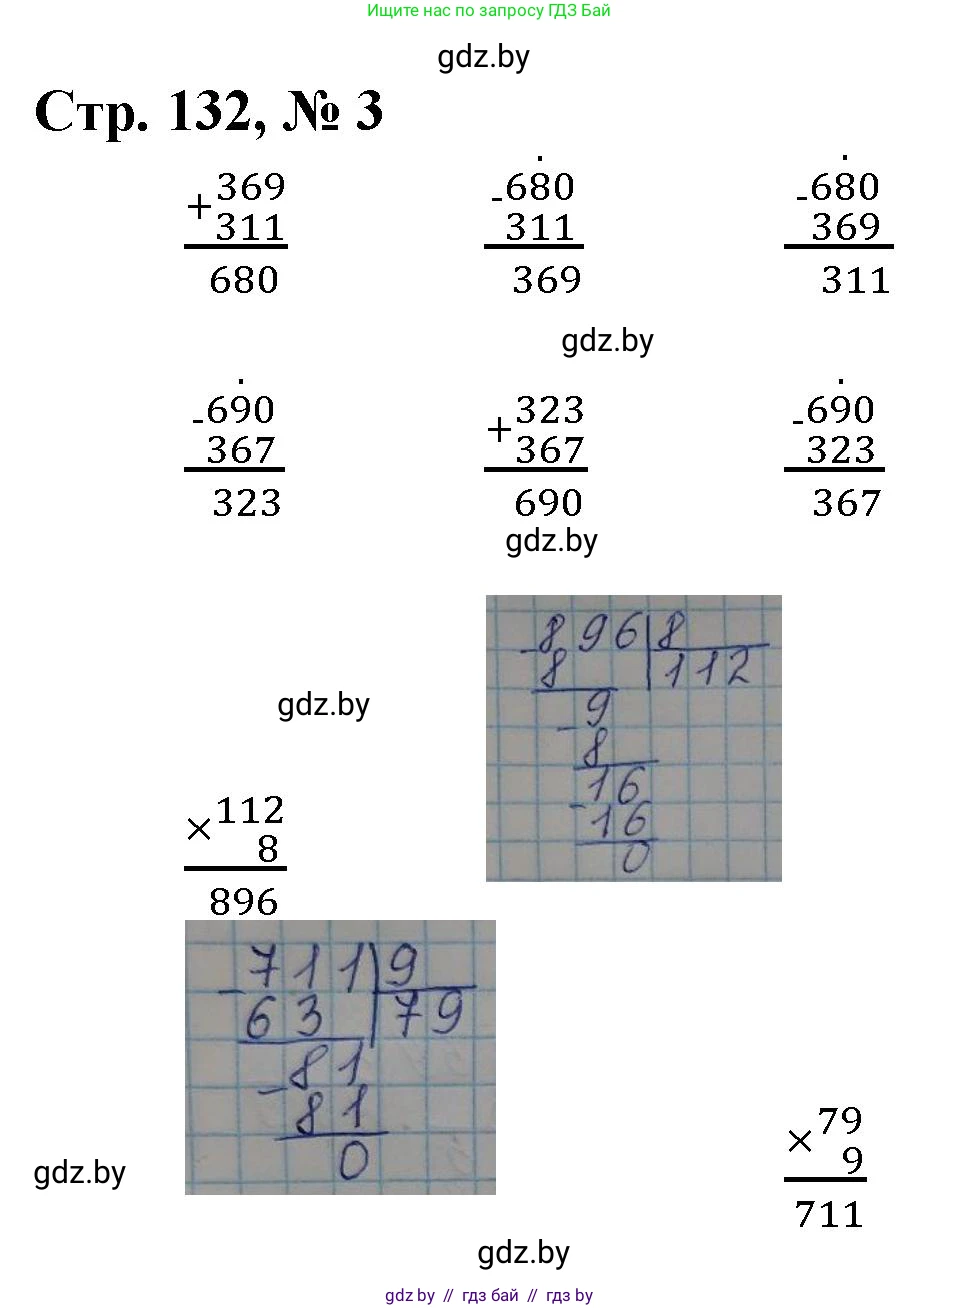 Ищите нас по запросу ГДЗ Бай
gdz.by
Стр. 132, № 3
+ 369 - 680 - 680
311 311 369
680 369 311
gdz.by
- 690 + 323 - 690
367 367 323
323 690 367
gdz.by
- 896 8
8 112
- 9
8
16
- 16
0
gdz.by
× 112
8
896
- 711 9
63 79
- 81
81
0
× 79
9
711
gdz.by
gdz.by
gdz.by // гдз бай // гдз by